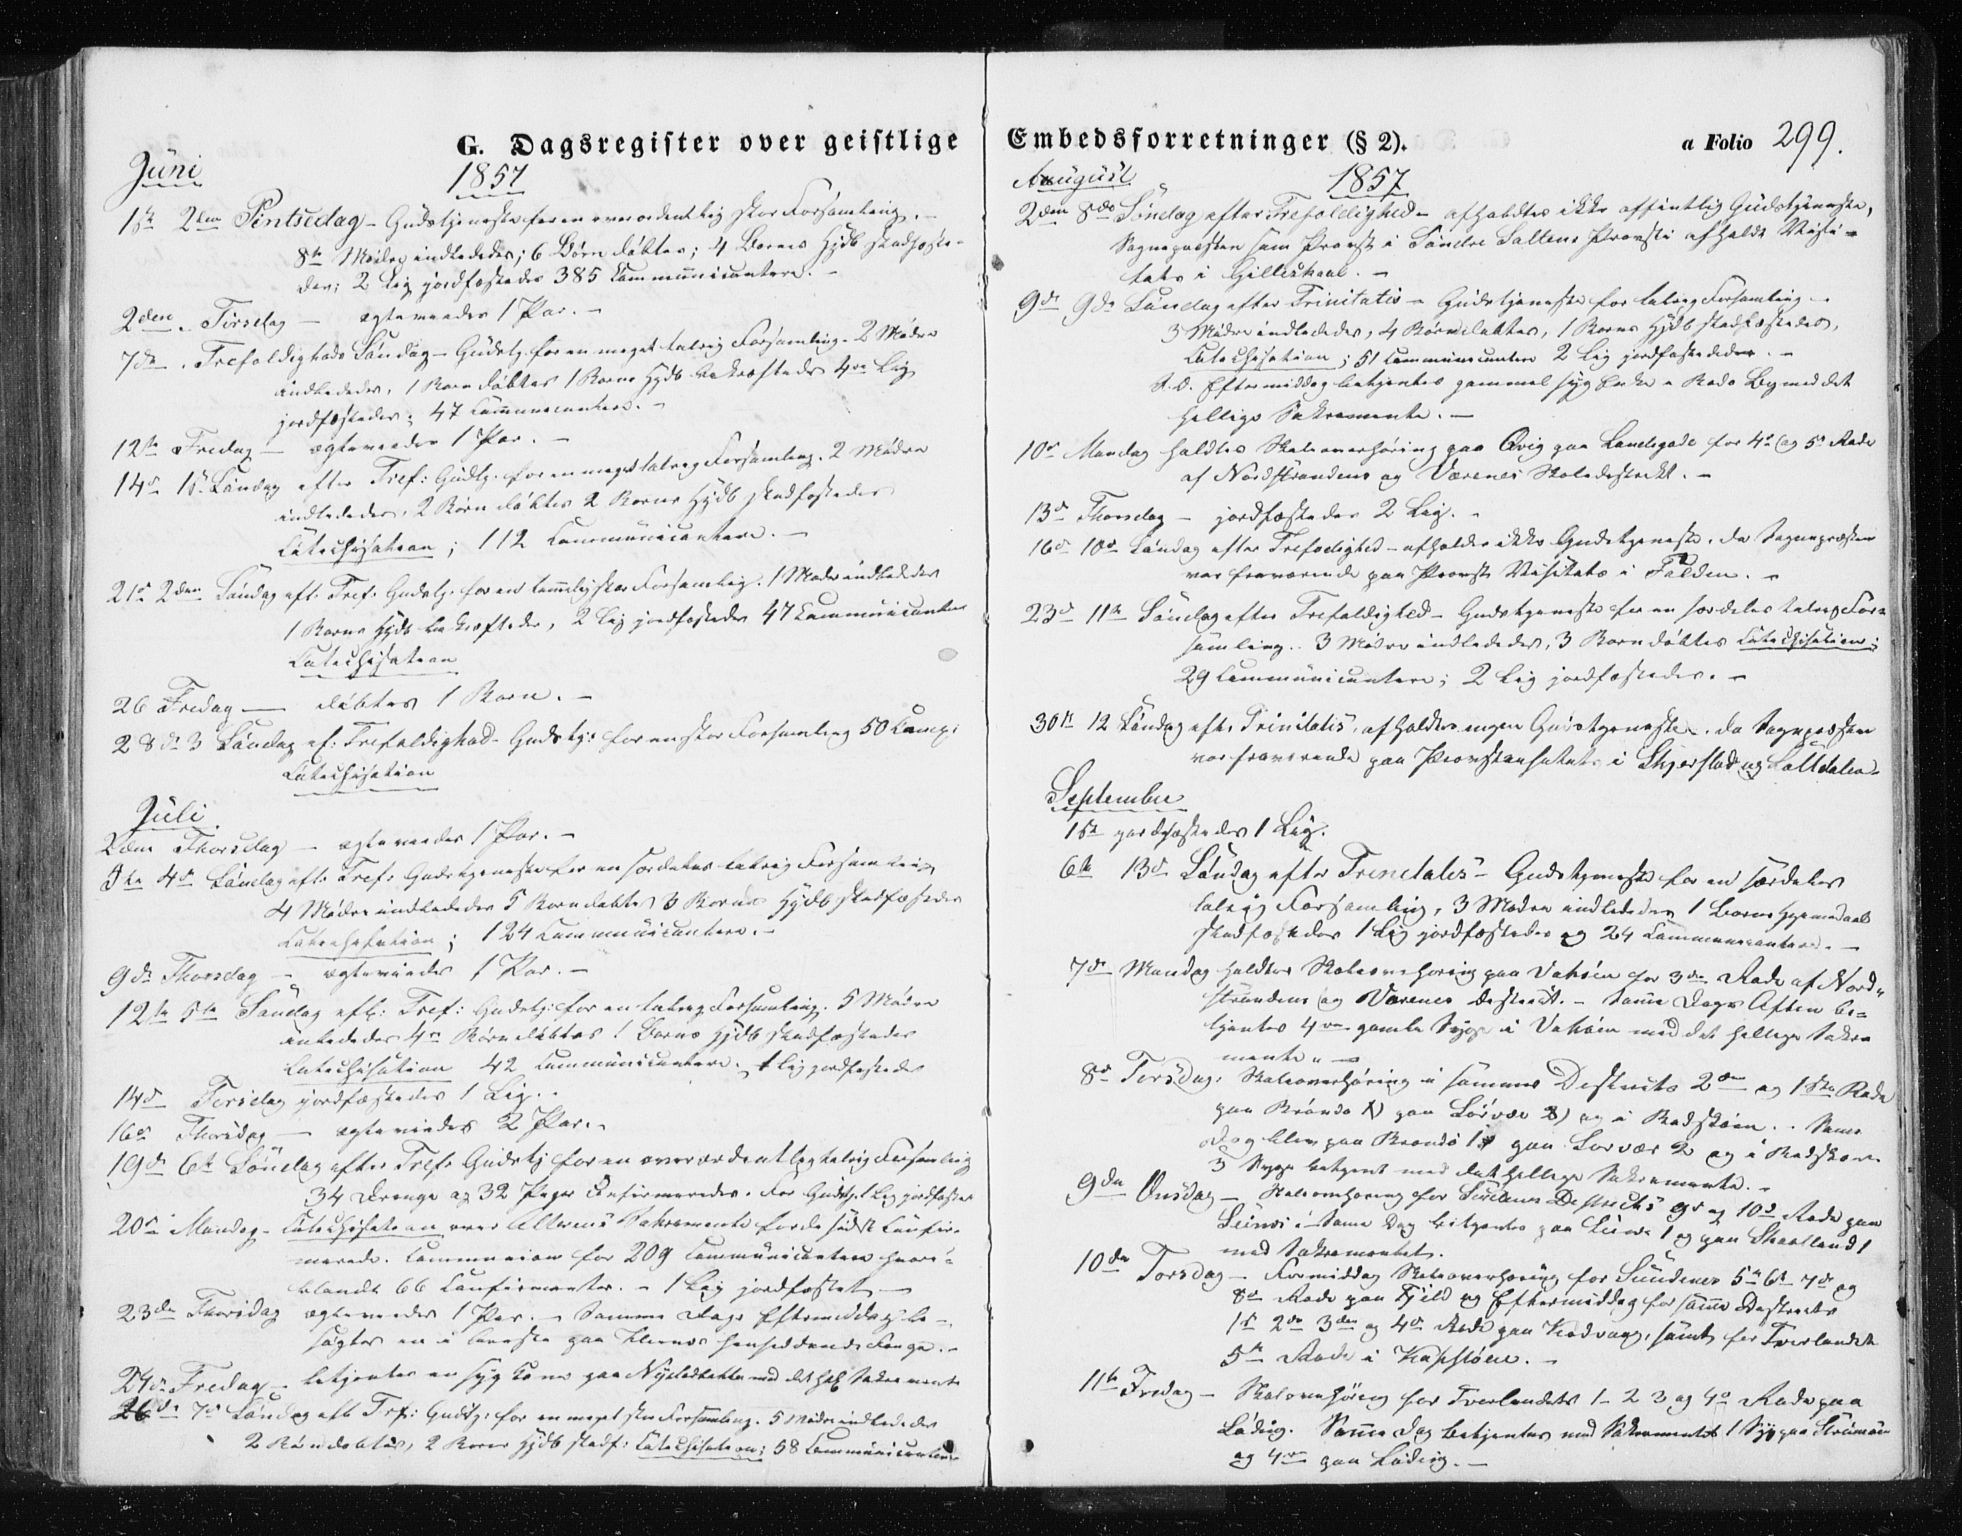 G. Dagsregister over geistlige
Juni
1857
1ste 2den Pintsedag - Gudstjeneste for en overordentlig stor Forsamling. -
8te Mødre indlededes; 6 Børn døbtes; 4 Børns Hjdb stadfæste-
des; 2 Lig jordfæstedes 385 Communicantere. -
2den. Tirsdag - ægteviedes 1 Par. -
7de. Trefoldigheds Søndag - Gudstj. for en meget talrig Forsamling. 2 Mødre
indlededes, 1 Barn døbtes 1 Barns Hjdb bekræftedes 4re Lig
jordfæstedes; 47 Communicantere. -
12te Fredag - ægteviedes 1 Par. -
14de 1ste Søndag efter Tref: Gudtj. for en meget talrig Forsamling. 2 Mødre
indlededes, 2 Børn døbtes 2 Børns Hjdb stadfæstedes
Catechisation; 112 Communicantere. -
21de 2den Søndag eft. Tref: Gudstj. for en temelig stor Forsamling. 1 Moder indlededes
1 Barns Hjdb bekræftedes, 2 Lig jordfæstedes 47 Communicantere
Catechisation
26 Fredag - døbtes 1 Barn. -
28de 3 Søndag ef: Trefoldighed - Gudstj: for en stor Forsamling 50 Comm:
Catechisation
Juli.
2den Thorsdag - ægteviedes 1 Par. -
5te 4de Søndag eft. Tref: Gudstjeneste for en særdeles talrig Forsamling
4 Mødre indlededes 5 Børn døbtes 3 Børns Hjdb stadfæstedes
Catechisation; 124 Communicantere. -
9de Thorsdag - ægteviedes 1 Par. -
12te 5te Søndag eft: Tref: Gudstj: for en talrig Forsamling. 5 Mødre
indlededes 4re Børn døbtes 1 Barns Hjdb stadfæstedes
Catechisation 42 Communicantere. 1 Lig jordfæstedes
14de Tirsdag jordfæstedes 1 Lig. -
16de Thorsdag - ægteviedes 2 Par. -
19de 6te Søndag efter Tref: Gudstj for en overordentlig talrig Forsamling
34 Drenge og 32 Piger Confirmeredes. Før Gudstj. 1 Lig jordfæstet
20de Mandag - Catechisation over Alterens Sakramente for de sidst Confir-
merede. Communion for 209 Communicantere hvori-
blandt 66 Confirmanter. - 1 Lig jordfæstet -
23de Thorsdag ægteviedes 1 Par. - Samme Dags Eftermiddag be-
søgtes en i hensiddende Fange. -
24de Fredag - betjentes en syg Kone paa med det hel. Sakramente
26de 7de Søndag eft Tref: Gudtj: for en meget stor Forsamling. 5 Mødre indlededes
2 Børn døbtes, 2 Børns Hjdb stadf: Catechisation; 58 Communicantere
Embedsforretninger (§ 2).
a Folio 299.
August
1857
2den 8de Søndag efter Trefoldighed - afholdtes ikke offentlig Gudstjeneste,
Sognepresten som Provst i Søndre Saltens Provsti afholdt Visi-
tats i Gilleskaal. -
9de 9de Søndag efter Trinitatis - Gudstjeneste for talrig Forsamling -
3 Mødre indlededes, 4 Børn døbtes, 1 Barns Hjdb stadfæstedes,
Catechisation; 51 Communicantere 2 Lig jordfæstedes. -
S.D. Eftermiddag betjentes gammel syg Enke i Bodø By med det
hellige Sakramente. -
10de Mandag holdtes Skoleoverhøring paa Qvig paa Landegode for 4de og 5te Rode
af Nordstrandens og Værenes Skoledistrikt. -
13de Thorsdag - jordfæstedes 2 Lig. -
16de 10de Søndag efter Trefoldighed - afholdes ikke Gudstjeneste, da Sognepræsten
var fraværende paa Provste Visitats i Folden. -
23de 11te Søndag efter Trefoldighed - Gudstjeneste for en særdeles talrig For-
samling. 3 Mødre indlededes, 3 Børn døbtes Catechisation;
29 Communicantere; 2 Lig jordfæstedes. -
30te 12 Søndag eft. Trinitatis, afholdtes ingen Gudstjeneste, da Sognepræsten
var fraværende paa Provstevisitats i Skjerstad og Saltdalen.
September
1ste jordfæstedes 1 Lig.
6te 13de Søndag efter Trinitatis - Gudstjeneste for en særdeles
talrig Forsamling, 3 Mødre indlededes 1 Barns Hjemmedaab
stadfæstedes 1 Lig jordfæstedes og 24 Communicantere. -
7de Mandag holdtes Skoleoverhøring paa for 3die Rode af Nord-
strandens og Værenes Distrikt. - Samme Dags Aften be-
tjentes 4re gamle Syge i med det hellige Sakra-
mente. -
8de Tirsdag, Skoleoverhøring i samme Districts 2den og 1ste Rode
paa Brandø 1) paa Lørvær 2) og i Badskøien. - Samme
Dag blev paa Brandø 1 paa Lørvær 2 og i Badskøien
3 Syge betjent med det hellige Sakramente. -
9de Onsdag - Skoleoverhøring for Sundenes Districts 9de og 10de Rode paa
Seines i Samme Dag betjentes paa Seines 1 og paa Skaelland 1
med Sakramentet.
10de Torsdag - Formiddag Skoleoverhøring for Sundenes 5te 6te 7de og
8de Rode paa Fjeld og Eftermiddag for samme Districts
1ste 2den 3die og 4de Rode paa Kodvaag, samt for Tverlandets
5te Rode i Kapstøen. -
11te Fredag - Skoleoverhøring for Tverlandets 1 - 2 3 og 4de Rode paa
Løding. Samme Dag betjentes med Sakramentet 1 Syg paa Strømøen
og 4re paa Løding. -